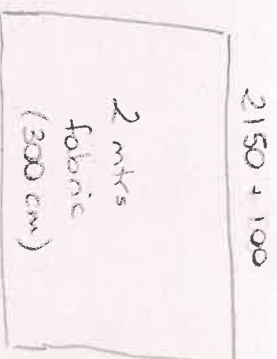 2150 + 100
2 mts
fabric
(300 cm)